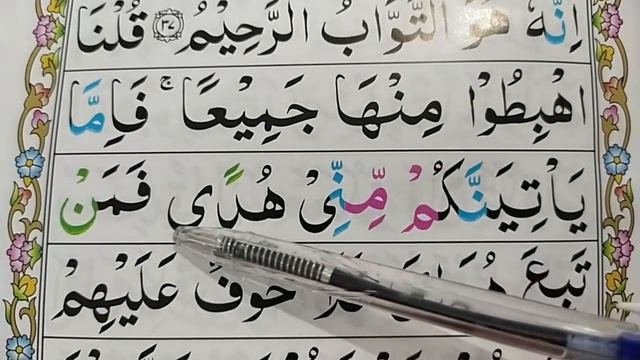 اِنَّهٗ هُوَ التَّوَّابُ الرَّحِيْمُ ﴿۳۷﴾ قُلْنَا
اهْبِطُوْا مِنْهَا جَمِيْعًا ۚ فَاِمَّا
يَاْتِيَنَّكُمْ مِّنِّيْ هُدًى فَمَنْ
تَبِعَ خَوْفٌ عَلَيْهِمْ